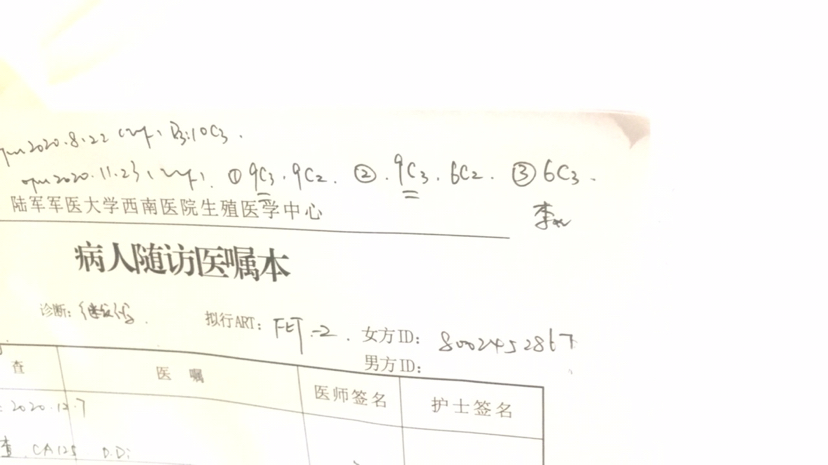 opu2020.8.22 D3:10C3.
opu2020.11.23 ① 9C3. 9C2. ②. 9C3. 6C2. ③ 6C3.
陆军军医大学西南医院生殖医学中心
李
病人随访医嘱本
诊断: 拟行ART: FET-2. 女方ID:
男方ID:
查 医 嘱 医师签名 护士签名
2020.12.7
查 CA125 D.Di